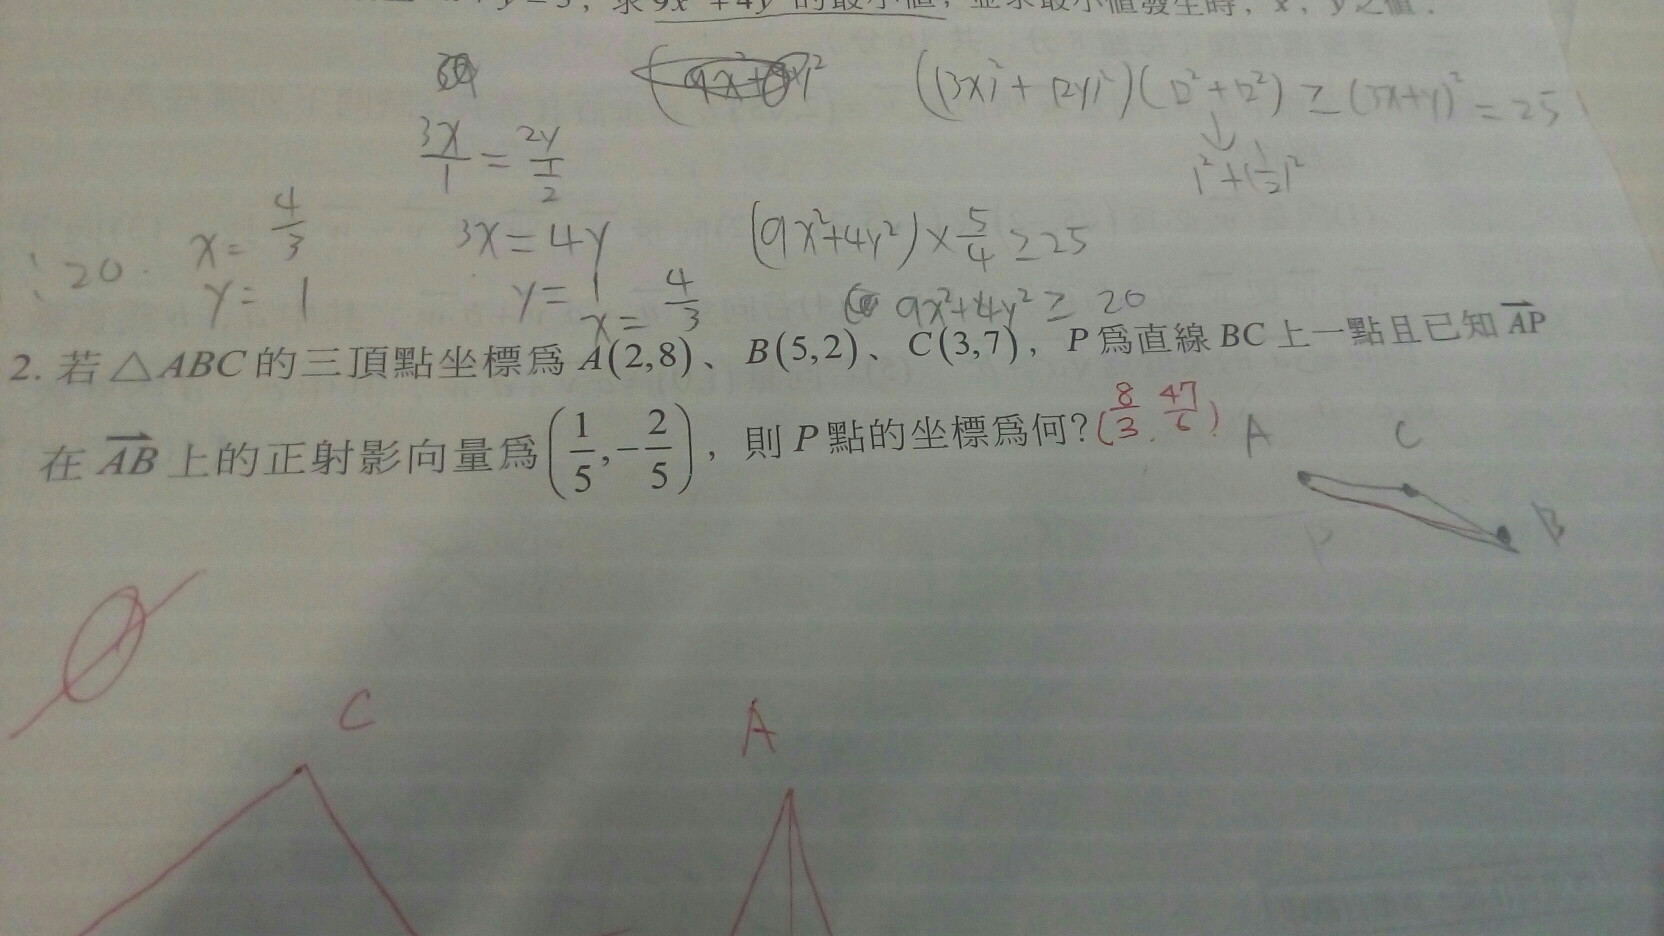 y = 5，求 9x² + 4y² 的最小值，並求最小值發生時，x，y 之值．
((3x)²+(2y)²)(□²+□²) ≥ (3x+y)² = 25
↓
1²+(1/2)²
3x/1 = 2y/(1/2)
x = 4/3
3x = 4y
(9x²+4y²) × 5/4 ≥ 25
: 20 .
y = 1
y = 1
x = 4/3
9x²+4y² ≥ 20
2. 若 △ABC 的三頂點坐標爲 A(2,8)、B(5,2)、C(3,7)，P 爲直線 BC 上一點且已知 AP⃗
在 AB⃗ 上的正射影向量爲 (1/5, -2/5)，則 P 點的坐標爲何? (8/3, 47/6)
A C
P B
C A